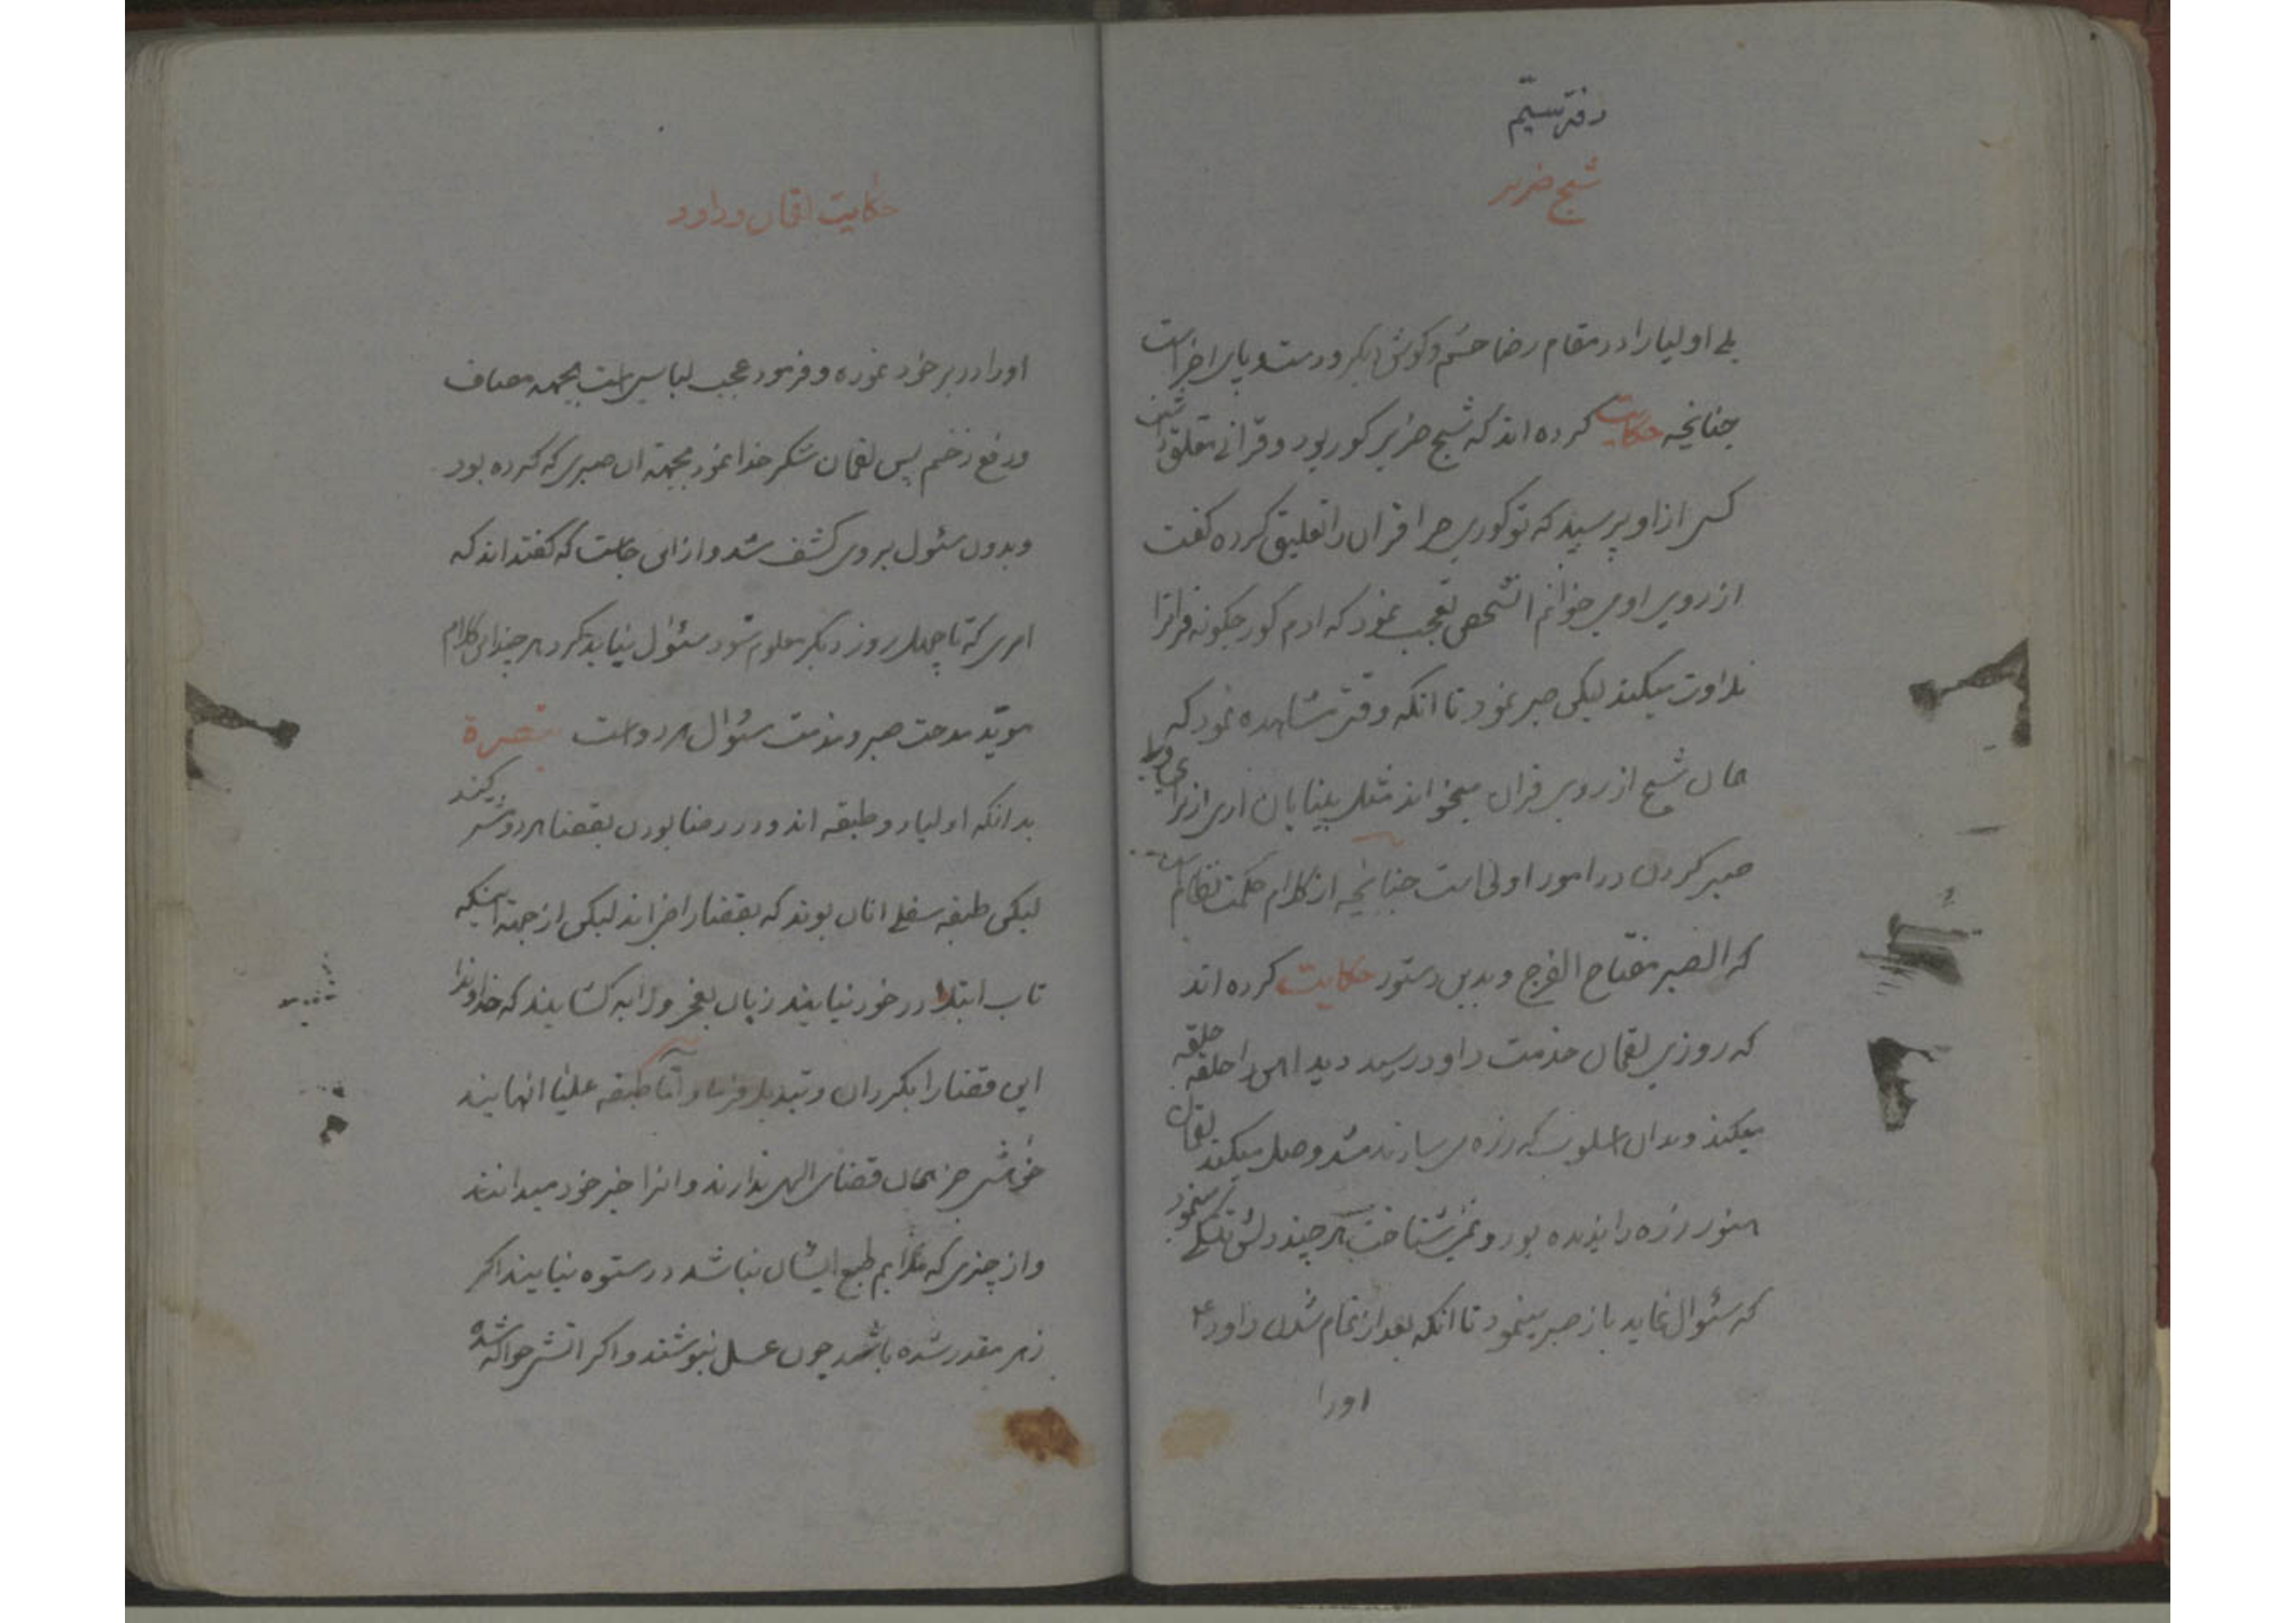 دفتر سیّم
شیخ ضریر
بلے اولیا را در مقام رضا چشم و گوش دیگر و دست و پای اخر است
چنانچه حکایت کرده اند که شیخ ضریر کور بود و قرانے معلق داشت
کسی از او پرسید که تو کوری چرا قران را تعلیق کرده گفت
از روی او می خوانم انشخص تعجب نمود که ادم کور چگونه قرانرا
تلاوت میکند لیکن صبر نمود تا انکه وقتی مشاهده نمود که
هان شیخ از روی قران میخواند مثل بینایان اری از برای
صبر کردن در امور اولی است چنانچه از کلام حکمت نظام
که الصبر مفتاح الفرج و بدین دستور حکایت کرده اند
که روزی لقمان خدمت داود رسید دید اهن را حلقه حلقه
میکند و بدان اسلوب که زره می سازند وصل میکند لقمان
هنوز زره را ندیده بود و نمی شناخت هر چند دلش تنگے مینمود
که سئوال نماید باز صبر مینمود تا انکه بعد از تمام شدن داود ع
اورا
حکایت لقمان و داود
اورا در بر خود نموده و فرمود عجب لباسی است بجهه مصاف
و دفع زخم پس لقمان شکر خدا نمود بجهة ان صبری که کرده بود
و بدون سئول بر وی کشف شد و از این جاست که گفته اند که
امری که تا چهل روز دیگر معلوم شود سئوال نباید کرد هر چند این کلام
موید مدحت صبر و مذمت سئوال هر دو است تبصرة
بدانکه اولیا دو طبقه اند و در رضا بودن بقضا هر دو شریکند
لیکن طبقه سفلے انان بوند که بقضا راضی اند لیکن از جهة اینکه
تاب ابتلا در خور نیابند زبان بعجز و لابه گشایند که خداوندا
این قضا را بگردان و تبدیل فرما و امّا طبقه علیا انهایند
خواهش جز همان قضای الهی ندارند و انرا خیر خود میدانند
و از چیزی که ملایم طبع ایشان نباشد در ستوه نیایند اگر
زهر مقدر شده باشد چون عسل بنوشند و اگر اتش حواله شده